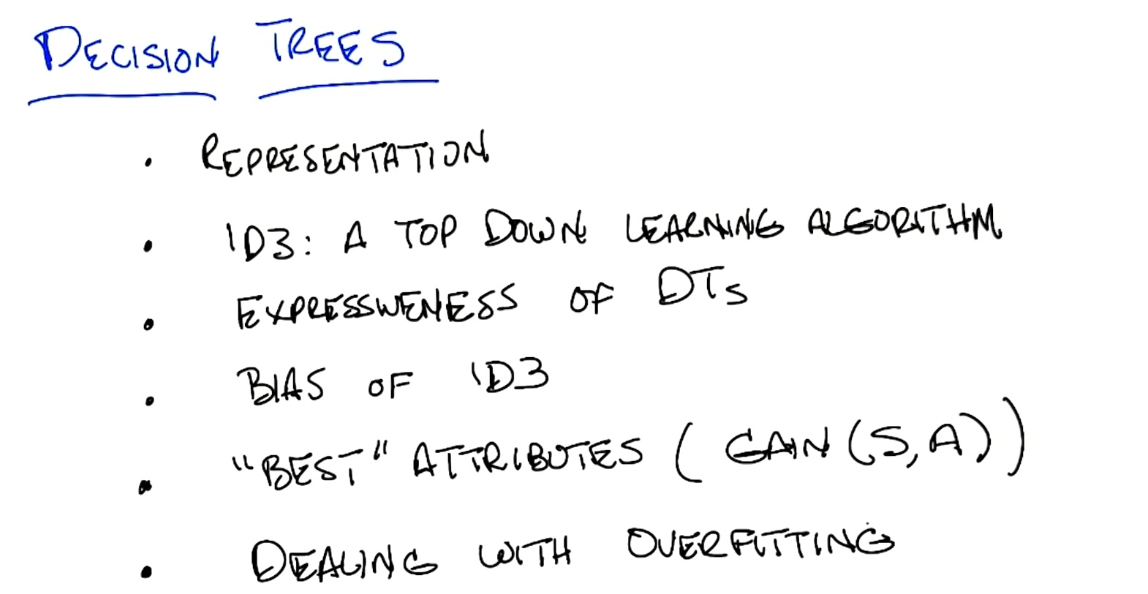 DECISION TREES
• REPRESENTATION
• ID3: A TOP DOWN LEARNING ALGORITHM
• EXPRESSIVENESS OF DTs
• BIAS OF ID3
• "BEST" ATTRIBUTES (GAIN(S,A))
• DEALING WITH OVERFITTING